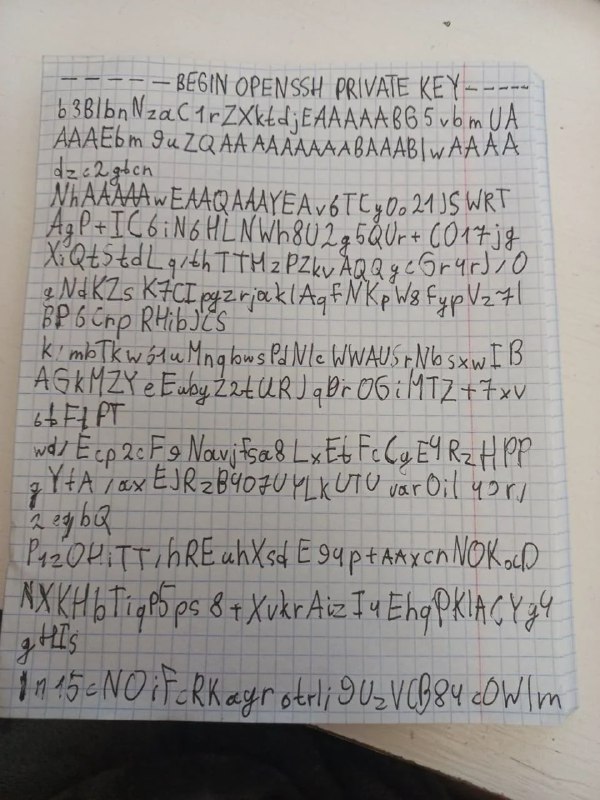 -----BEGIN OPENSSH PRIVATE KEY-----
b3BlbnNzaC1rZXktdjEAAAAABG5vbmUA
AAAEbm9uZQAAAAAAAAABAAABlwAAAA
dzc2gtcn
NhAAAAAwEAAQAAAYEAv6TCyOo21JSWRT
AgP+IC6iN6HLNWh8U2g5QUr+CO17jg
XiQt5tdLq/thTTMzPZkvAQQgcGr4rJ/O
gNdKZsK7CIpgzrjaklAqfNKpW8fypVz71
BP6CnpRHibJCS
k/mbTkw61uMnqbwsPdNlcWWAUSrNbsxwIB
AGkMZYeEubyZ2tURJqDrOGiMTZ+7xv
6tFfPT
wd/Ecp2cF9Navjfsa8LxEtFcCgE4RzHPP
gYfA/axEJRzB4O7UYLKUTUvarOil4Or/
2egbQ
P1zOHiTT/hREuhXsdE94p+AAxcnNOKocD
NXKHbTiqP5ps8+XvkrAizI4EhqPKlACYg4
gHIs
1n15cNOiFcRKagrotrli9UzVCB84cOWlm